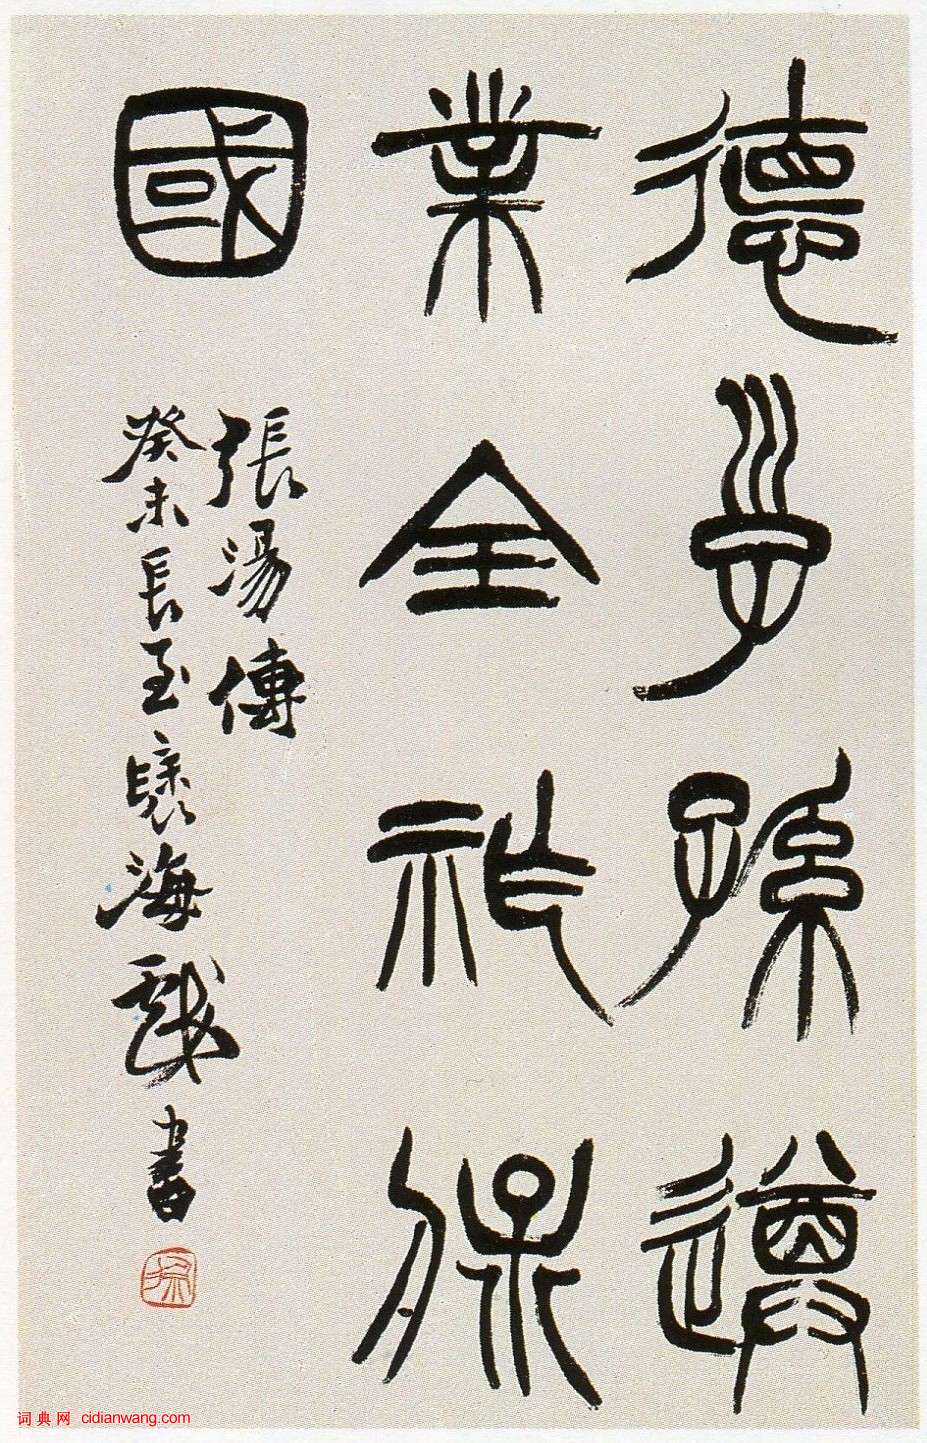 德子孫遵
業全祚保
國
張湯傳
癸未長至海戲書
词典网 cidianwang.com